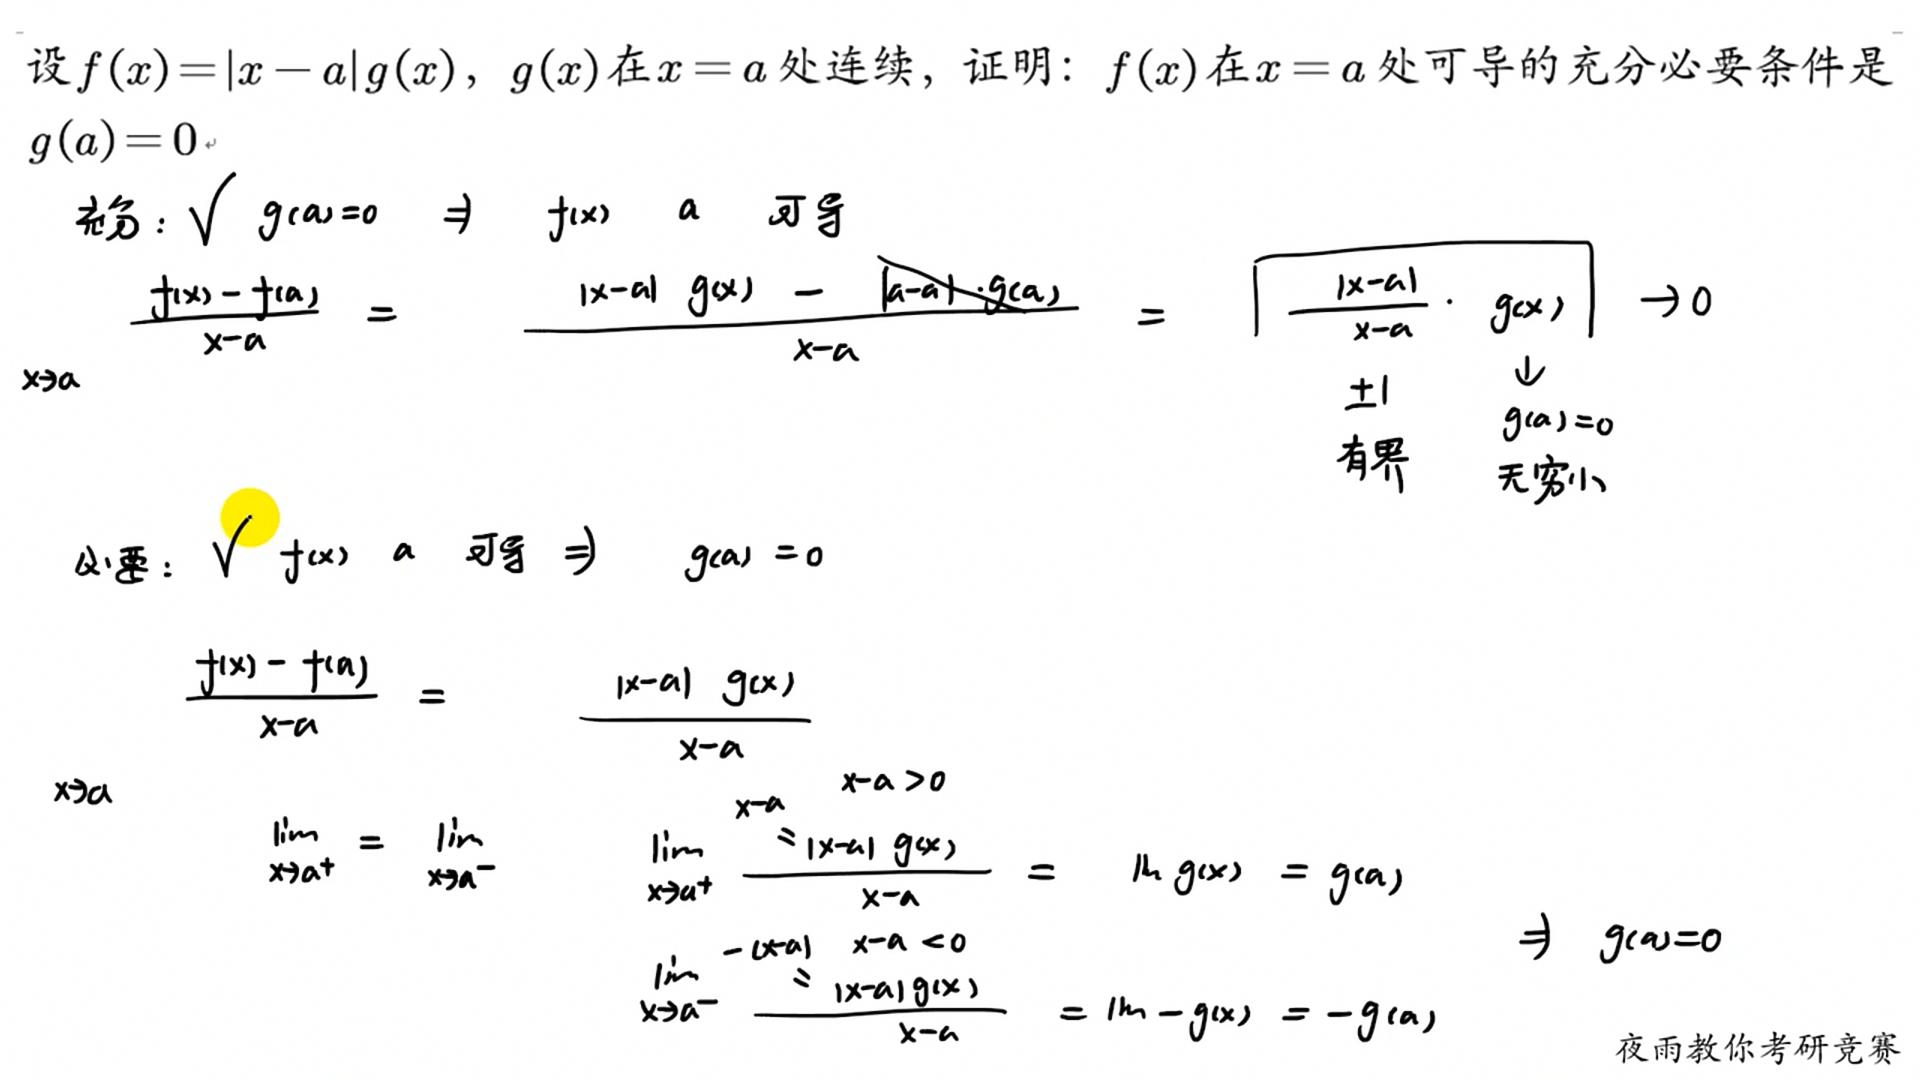 设f(x)=|x-a|g(x)，g(x)在x=a处连续，证明：f(x)在x=a处可导的充分必要条件是
g(a)=0
充分：√ g(a)=0 ⇒ f(x) a 可导
x→a (f(x)-f(a))/(x-a) = (|x-a| g(x) - |a-a|·g(a))/(x-a) = |x-a|/(x-a) · g(x) → 0
±1 ↓
g(a)=0
有界 无穷小
必要：√ f(x) a 可导 ⇒ g(a)=0
x→a (f(x)-f(a))/(x-a) = (|x-a| g(x))/(x-a)
x-a>0
x-a
lim x→a⁺ = lim x→a⁻ lim x→a⁺ (=|x-a| g(x))/(x-a) = lim g(x) = g(a)
-(x-a) x-a<0
⇒ g(a)=0
lim x→a⁻ (=|x-a|g(x))/(x-a) = lim -g(x) = -g(a)
夜雨教你考研竞赛